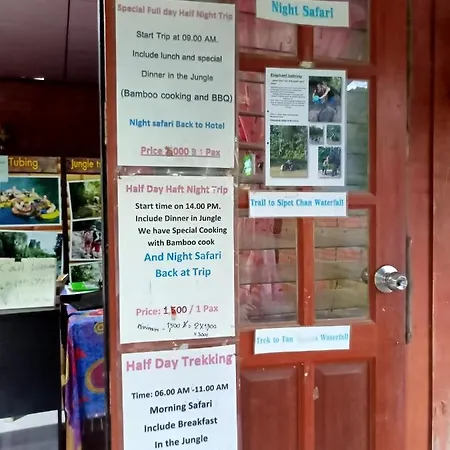 Special Full day Half Night Trip
Start Trip at 09.00 AM.
Include lunch and special
Dinner in the Jungle
(Bamboo cooking and BBQ)
Night safari Back to Hotel
Price 000 ฿ 1 Pax
Half Day Haft Night Trip
Start time on 14.00 PM.
Include Dinner in Jungle
We have Special Cooking
with Bamboo cook
And Night Safari
Back at Trip
Price: 1,500 / 1 Pax
Half Day Trekking
Time: 06.00 AM -11.00 AM
Morning Safari
Include Breakfast
In the Jungle
Night Safari
Trail to Sipet Chan Waterfall
Trek to Tan Waterfall
Tubing
Jungle